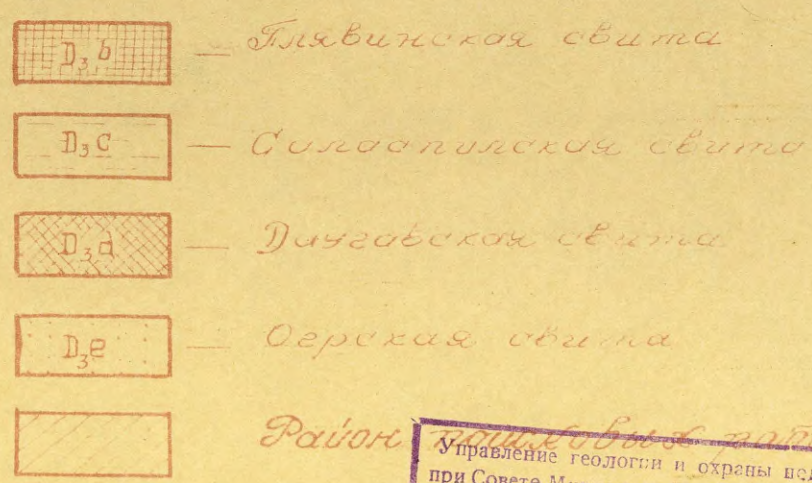 D₃b — Плявинская свита
D₃c — Саласпилская свита
D₃d — Даугавская свита
D₃e — Огрская свита
Район поисковых
Управление геологии и охраны
при Совете